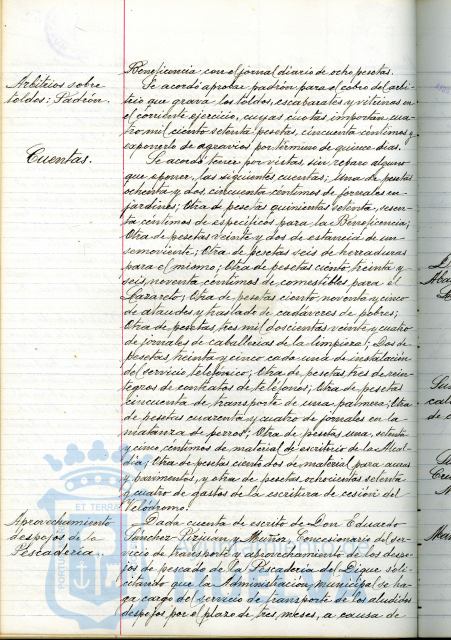 Beneficencia con el jornal diario de ocho pesetas.
Arbitrios sobre
toldos: Padrón.
Se acordó aprobar padrón para el cobro del arbi-
trio que grava los toldos, escabarales y vitrinas en
el corriente ejercicio, cuyas cuotas importan cua-
tro mil ciento setenta pesetas, cincuenta céntimos y
exponerlo de agravios por término de quince días.
Cuentas.
Se acordó tener por vistas, sin reparo alguno
que oponer, las siguientes cuentas; Una de pesetas
ochenta y dos, cincuenta céntimos de jornales en
jardines; Otra de pesetas quinientas setenta, sesen-
ta céntimos de específicos para la Beneficencia;
Otra de pesetas veinte y dos de estancia de un
semoviente; Otra de pesetas seis de herraduras
para el mismo; Otra de pesetas ciento treinta y
seis, noventa céntimos de comestibles para el
Lazareto; Otra de pesetas ciento noventa y cinco
de ataudes y traslado de cadáveres de pobres;
Otra de pesetas tres mil doscientas veinte y cuatro
de jornales de caballerías de la limpieza; Dos de
pesetas treinta y cinco cada una de instalación
del servicio telefónico; Otra de pesetas tres de rein-
tegros de contratos de teléfonos; Otra de pesetas
cincuenta de transporte de una palmera; Otra
de pesetas cuarenta y cuatro de jornales en la
matanza de perros; Otra de pesetas una, setenta
y cinco céntimos de material de escritorio de la Alcal-
día; Otra de pesetas ciento dos de material para
y pavimentos, y otra de pesetas ochocientas setenta
y cuatro de gastos de la escritura de cesión del
Velódromo.
Aprovechamiento
despojos de la
Pescadería.
Dada cuenta de escrito de Don Eduardo
Sánchez-Pizjuan y Muñoz, Concesionario del ser-
vicio de transporte y aprovechamiento de los despo-
jos de pescado de la Pescadería del Dique soli-
citando que la Administración municipal se ha-
ga cargo del servicio de transporte de los aludidos
despojos por el plazo de tres meses, a causa de